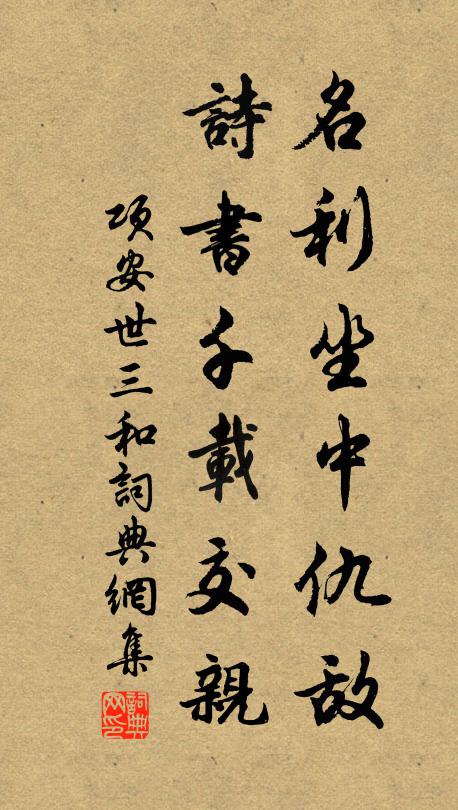 名利坐中仇敌
詩書千載交親
项安世三和詞典網集
詞典網印